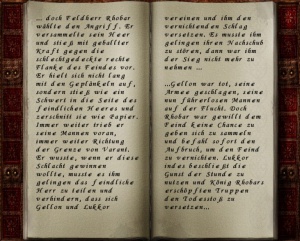 ... doch Feldherr Rhobar
wählte den Angriff. Er
versammelte sein Heer
und stieß mit geballter
Kraft gegen die
schlechtgedeckte rechte
Flanke des Feindes vor.
Er hielt sich nicht lang
mit den Geplänkeln auf,
sondern stieß wie ein
Schwert in die Seite des
feindlichen Heeres und
zerschnitt sie wie Papier.
Immer weiter trieb er
seine Mannen voran,
immer weiter Richtung
der Grenze von Varant.
Er wusste, wenn er diese
Schlacht gewinnen
wollte, musste es ihm
gelingen das feindliche
Heer zu teilen und
verhindern, dass sich
Gellon und Lukkor
vereinen und ihm den
vernichtenden Schlag
versetzen. Es musste ihm
gelingen ihren Nachschub
zu stören, dann war ihm
der Sieg nicht mehr zu
nehmen ...
...Gellon war tot, seine
Armee geschlagen, seine
nun führerlosen Mannen
auf der Flucht. Doch
Rhobar war gewillt dem
Feind keine Chance zu
geben sich zu sammeln
und befahl sofort den
Aufbruch, um den Feind
zu vernichten. Lukkor
indes beschließt die
Gunst der Stunde zu
nutzen und König Rhobars
erschöpften Truppen
den Todesstoß zu
versetzen...